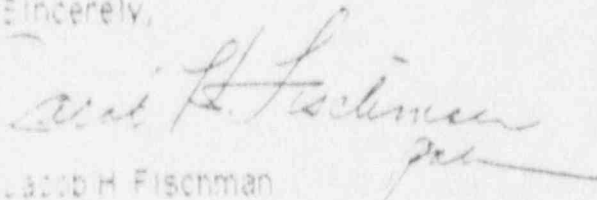 Sincerely,
H. Fischman
Jacob H Fischman